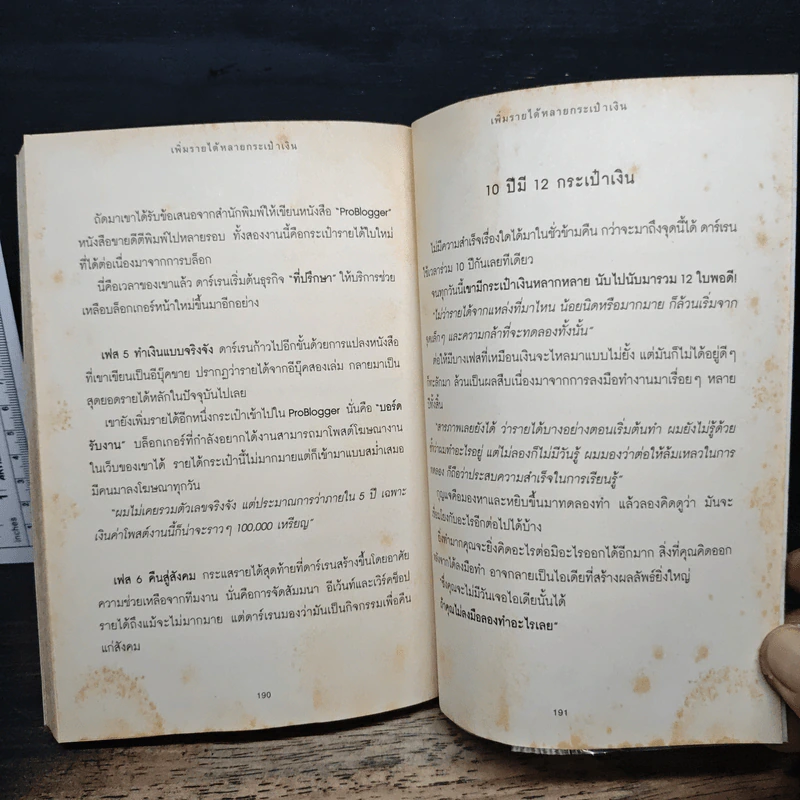 เพิ่มรายได้หลายกระเป๋าเงิน
ถัดมาเขาได้รับข้อเสนอจากสำนักพิมพ์ให้เขียนหนังสือ "ProBlogger"
หนังสือขายดีตีพิมพ์ไปหลายรอบ ทั้งสองงานนี้คือกระเป๋ารายได้ใบใหม่
ที่ได้ต่อเนื่องมาจากการบล็อก
นี่คือเวลาของเขาแล้ว ดาร์เรนเริ่มต้นธุรกิจ "ที่ปรึกษา" ให้บริการช่วย
เหลือบล็อกเกอร์หน้าใหม่ขึ้นมาอีกอย่าง
เฟส 5 ทำเงินแบบจริงจัง ดาร์เรนก้าวไปอีกขั้นด้วยการแปลงหนังสือ
ที่เขาเขียนเป็นอีบุ๊คขาย ปรากฏว่ารายได้จากอีบุ๊คสองเล่ม กลายมาเป็น
สุดยอดรายได้หลักในปัจจุบันไปเลย
เขายังเพิ่มรายได้อีกหนึ่งกระเป๋าเข้าไปใน ProBlogger นั่นคือ "บอร์ด
รับงาน" บล็อกเกอร์ที่กำลังอยากได้งานสามารถมาโพสต์โฆษณางาน
ในเว็บของเขาได้ รายได้กระเป๋านี้ไม่มากมายแต่ก็เข้ามาแบบสม่ำเสมอ
มีคนมาลงโฆษณาทุกวัน
"ผมไม่เคยรวมตัวเลขจริงจัง แต่ประมาณการว่าภายใน 5 ปี เฉพาะ
เงินค่าโพสต์งานนี้ก็น่าจะราวๆ 100,000 เหรียญ"
เฟส 6 คืนสู่สังคม กระแสรายได้สุดท้ายที่ดาร์เรนสร้างขึ้นโดยอาศัย
ความช่วยเหลือจากทีมงาน นั่นคือการจัดสัมมนา อีเว้นท์และเวิร์คช็อป
รายได้ถึงแม้จะไม่มากมาย แต่ดาร์เรนมองว่ามันเป็นกิจกรรมเพื่อคืน
แก่สังคม
190
เพิ่มรายได้หลายกระเป๋าเงิน
10 ปีมี 12 กระเป๋าเงิน
ไม่มีความสำเร็จเรื่องใดได้มาในชั่วข้ามคืน กว่าจะมาถึงจุดนี้ได้ ดาร์เรน
ใช้เวลาร่วม 10 ปีกันเลยทีเดียว
จนทุกวันนี้เขามีกระเป๋าเงินหลากหลาย นับไปนับมารวม 12 ใบพอดี!
"ไม่ว่ารายได้จากแหล่งที่มาไหน น้อยนิดหรือมากมาย ก็ล้วนเริ่มจาก
จุดเล็กๆ และความกล้าที่จะทดลองทั้งนั้น"
ต่อให้มีบางเฟสที่เหมือนเงินจะไหลมาแบบไม่ยั้ง แต่มันก็ไม่ได้อยู่ดีๆ
ก็ทะลักมา ล้วนเป็นผลสืบเนื่องมาจากการลงมือทำงานมาเรื่อยๆ หลาย
ปีทั้งสิ้น
"สารภาพเลยยังได้ ว่ารายได้บางอย่างตอนเริ่มต้นทำ ผมยังไม่รู้ด้วย
ซ้ำว่าผมทำอะไรอยู่ แต่ไม่ลองก็ไม่มีวันรู้ ผมมองว่าต่อให้ล้มเหลวในการ
ทดลอง ก็ถือว่าประสบความสำเร็จในการเรียนรู้"
กุญแจคือมองหาและหยิบขึ้นมาทดลองทำ แล้วลองคิดดูว่า มันจะ
เชื่อมโยงกับอะไรอีกต่อไปได้บ้าง
ยิ่งทำมากคุณจะยิ่งคิดอะไรต่อมิอะไรออกได้อีกมาก สิ่งที่คุณคิดออก
หลังจากได้ลงมือทำ อาจกลายเป็นไอเดียที่สร้างผลลัพธ์ยิ่งใหญ่
ซึ่งคุณจะไม่มีวันเจอไอเดียนั้นได้
ถ้าคุณไม่ลงมือลองทำอะไรเลย"
191
inches